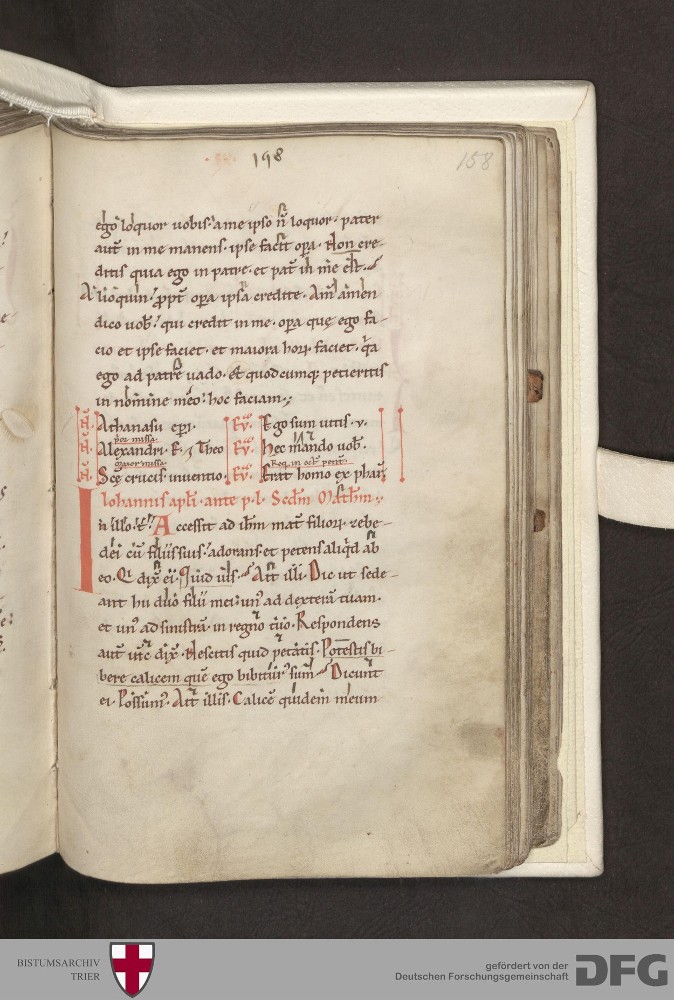 198
158
ego loquor uobis. a me ipso n̄ loquor. pater
aut̄ in me manens. ipse facit oꝑa. Non cre-
ditis quia ego in patre. et pat̄ in me est.
Alioquin. ꝓpt̄ oꝑa ipsa credite. Am̄ amen
dico uob̄. qui credit in me. oꝑa que ego fa-
cio et ipse faciet. et maiora hoꝝ faciet. q̄a
ego ad patrē uado. Et quodcumq; petieritis
in nomine meo. hoc faciam.
Athanasii ep̄i. Eū. Ego sum uitis. v.
por missa
Alexandri. E. ⁊ Theo Eū. Hec mando uob̄.
maior missa Req. in oct̄ pent̄.
Sc̄e crucis inuentio. Eū. Erat homo ex phariſ
Iohannis apl̄i. ante p. l. Scd̄m Math̄m.
In illo. t̄. Accessit ad ih̄m mat̄ filioꝝ zebe-
dei cū filiis suis. adorans. et petens aliq̄d ab
eo. Qi dix̄ ei. Quid uis. Ait illi. Dic ut sede-
ant hii duo filii mei. un᾽ ad dexterā tuam.
et un᾽ ad sinistrā. in regno tuo. Respondens
aut̄ ih̄c dix̄. Nescitis quid petatis. Potestis bi-
bere calicem quē ego bibitur᾽ sum. Dicunt
ei. Possum᾽. Ait illis. Calicē quidem meum
BISTUMSARCHIV
TRIER
gefördert von der
Deutschen Forschungsgemeinschaft
DFG